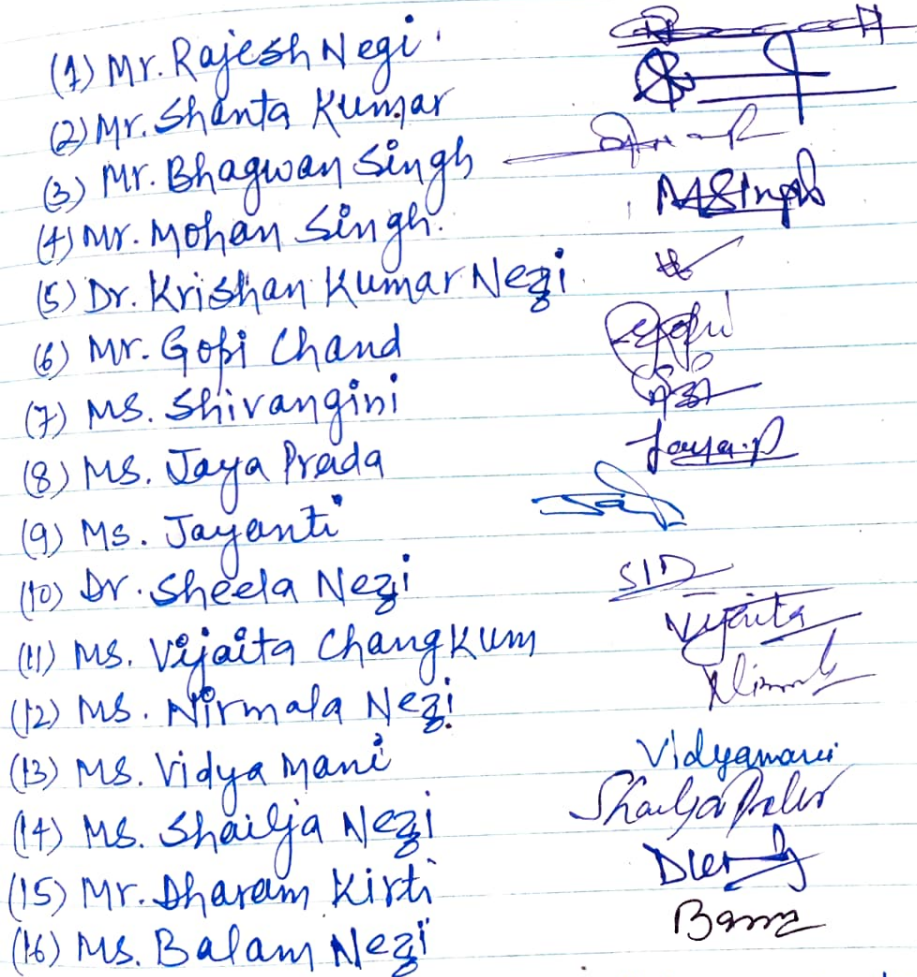 (1) Mr. Rajesh Negi
(2) Mr. Shanta Kumar
(3) Mr. Bhagwan Singh
(4) Mr. Mohan Singh. MSingh
(5) Dr. Krishan Kumar Negi
(6) Mr. Gopi Chand
(7) Ms. Shivangini
(8) Ms. Jaya Prada Jaya.P
(9) Ms. Jayanti
(10) Dr. Sheela Negi
(11) Ms. Vijaita Changkum Vijaita
(12) Ms. Nirmala Negi
(13) Ms. Vidya Mani Vidyamani
(14) Ms. Shailja Negi
(15) Mr. Dharam Kirti
(16) Ms. Balam Negi